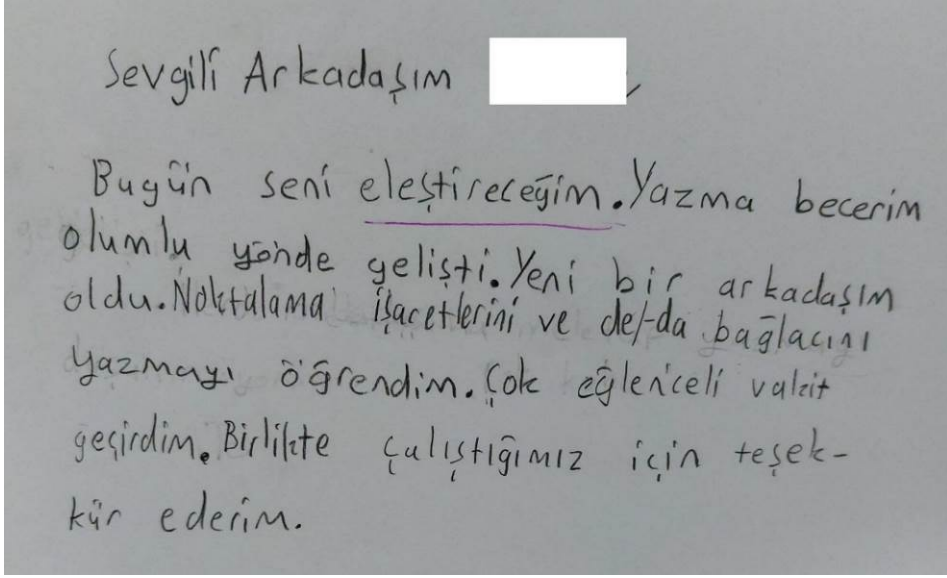 Sevgili Arkadaşım ,
Bugün seni eleştireceğim. Yazma becerim
olumlu yönde gelişti. Yeni bir arkadaşım
oldu. Noktalama işaretlerini ve de/-da bağlacını
yazmayı öğrendim. Çok eğlenceli vakit
geçirdim. Birlikte çalıştığımız için teşek-
kür ederim.